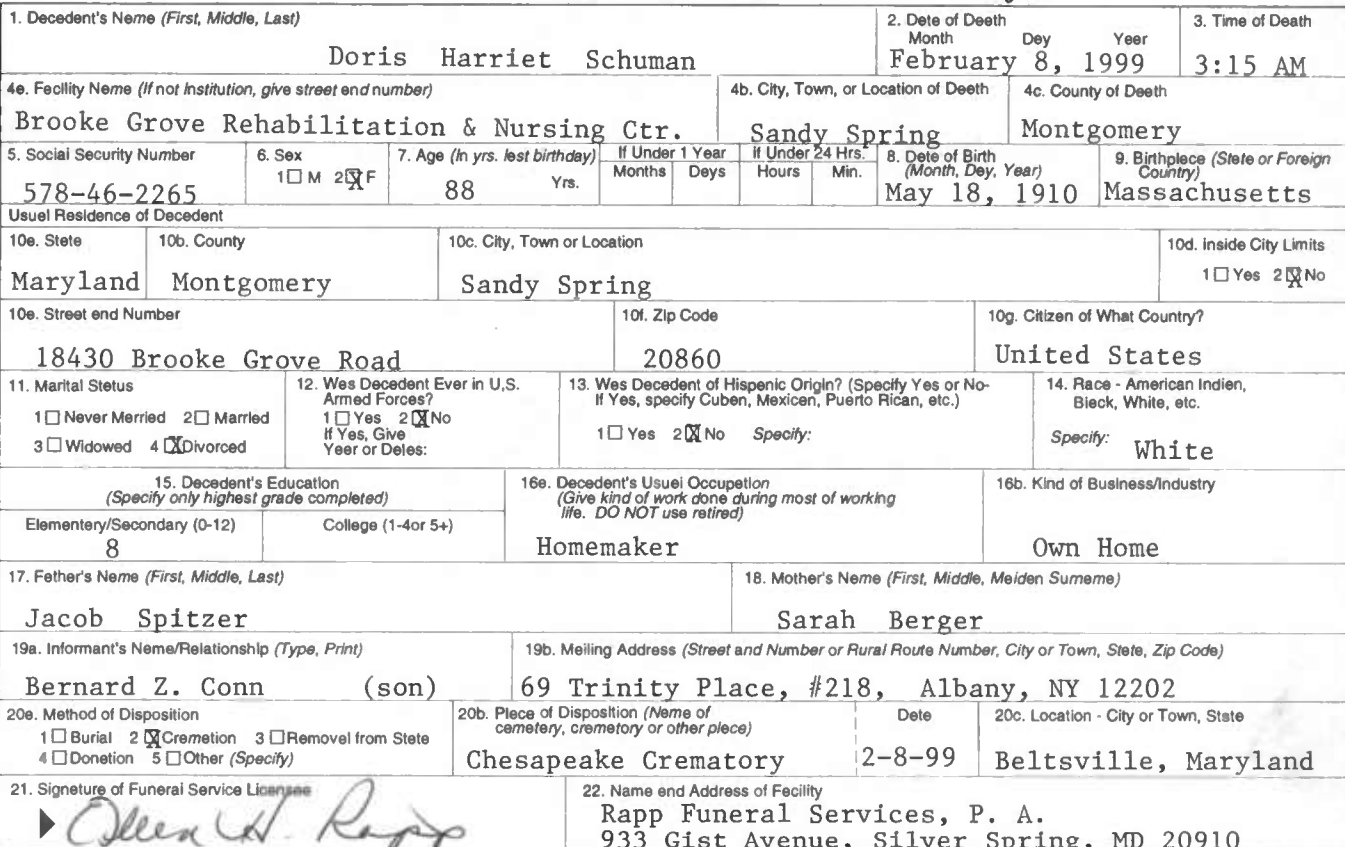 1. Decedent's Neme (First, Middle, Last)
Doris Harriet Schuman
2. Dete of Deeth
Month Dey Yeer
February 8, 1999
3. Time of Death
3:15 AM
4e. Fecility Name (If not Institution, give street end number)
Brooke Grove Rehabilitation & Nursing Ctr.
4b. City, Town, or Location of Deeth
Sandy Spring
4c. County of Deeth
Montgomery
5. Social Security Number
578-46-2265
6. Sex
1☐ M 2☒ F
7. Age (In yrs. lest birthday)
88 Yrs.
If Under 1 Year
Months Deys
If Under 24 Hrs.
Hours Min.
8. Dete of Birth
(Month, Dey, Year)
May 18, 1910
9. Birthplece (Stete or Foreign
Country)
Massachusetts
Usuel Residence of Decedent
10e. Stete
Maryland
10b. County
Montgomery
10c. City, Town or Location
Sandy Spring
10d. Inside City Limits
1☐ Yes 2☒ No
10e. Street end Number
18430 Brooke Grove Road
10f. Zip Code
20860
10g. Citizen of What Country?
United States
11. Marital Stetus
1☐ Never Merried 2☐ Married
3☐ Widowed 4☒ Divorced
12. Wes Decedent Ever in U.S.
Armed Forces?
1☐ Yes 2☒ No
If Yes, Give
Yeer or Detes:
13. Wes Decedent of Hispenic Origin? (Specify Yes or No-
If Yes, specify Cuben, Mexicen, Puerto Rican, etc.)
1☐ Yes 2☒ No Specify:
14. Race - American Indien,
Bleck, White, etc.
Specify: White
15. Decedent's Education
(Specify only highest grade completed)
Elementery/Secondary (0-12)
8
College (1-4or 5+)
16e. Decedent's Usuel Occupetion
(Give kind of work done during most of working
life. DO NOT use retired)
Homemaker
16b. Kind of Business/Industry
Own Home
17. Father's Neme (First, Middle, Last)
Jacob Spitzer
18. Mother's Neme (First, Middle, Meiden Surneme)
Sarah Berger
19a. Informant's Neme/Relationship (Type, Print)
Bernard Z. Conn (son)
19b. Meiling Address (Street and Number or Rural Route Number, City or Town, Stete, Zip Code)
69 Trinity Place, #218, Albany, NY 12202
20e. Method of Disposition
1☐ Burial 2☒ Cremetion 3☐ Removel from Stete
4☐ Donetion 5☐ Other (Specify)
20b. Plece of Disposition (Neme of
cemetery, cremetory or other plece)
Chesapeake Crematory
Dete
2-8-99
20c. Location - City or Town, State
Beltsville, Maryland
21. Signeture of Funeral Service Licensee
H. Rapp
22. Name end Address of Fecility
Rapp Funeral Services, P. A.
933 Gist Avenue, Silver Spring, MD 20910